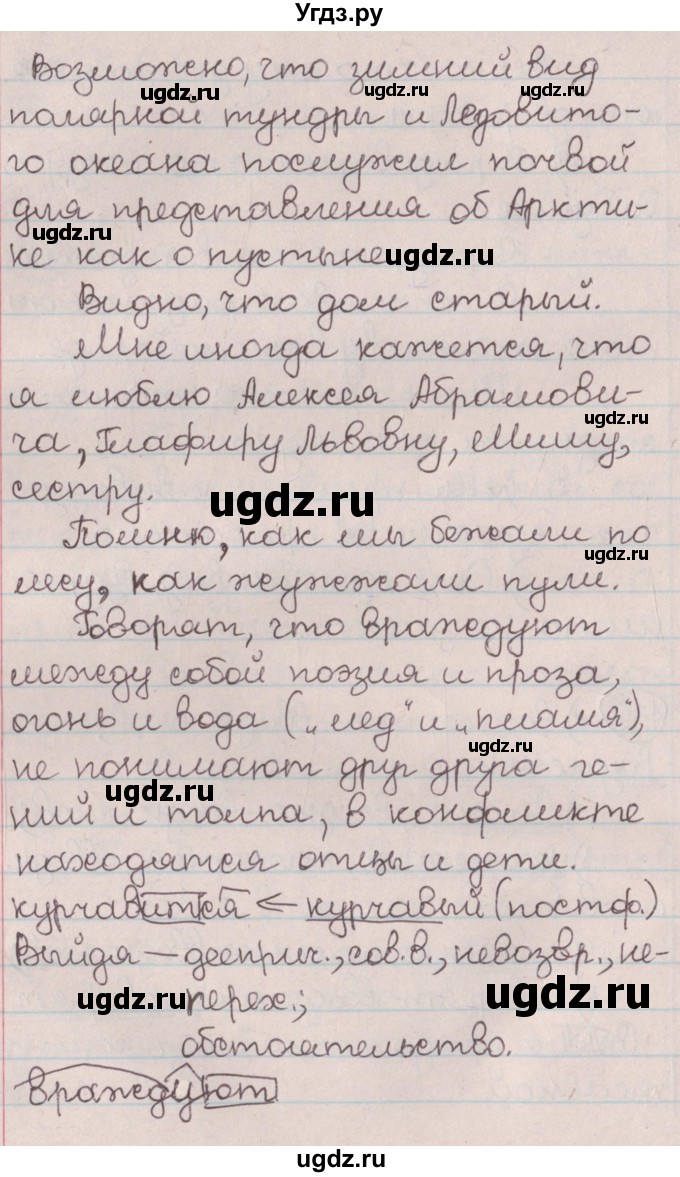 Угдз.ру
Возможно, что зимний вид
ugdz.ru ugdz.ru
полярной тундры и Ледовито-
го океана послужил почвой
для представления об Аркти-
ugdz.ru
ке как о пустыне
ugdz.ru
Видно, что дом старый.
Мне иногда кажется, что
я люблю Алексея Абрамови-
ugdz.ru
ча, Глафиру Львовну, Мишу,
сестру.
ugdz.ru
Помню, как мы бежали по
ugdz.ru
лесу, как жужжали пули.
Говорят, что враждуют
между собой поэзия и проза,
огонь и вода („лед“ и „пламя“),
ugdz.ru
не понимают друг друга ге-
ugdz.ru
ний и толпа, в конфликте
находятся отцы и дети.
курчавится ← курчавый (постф.)
Выйдя — дееприч., сов.в., невозвр., не-
ugdz.ru перех.; ugdz.ru
обстоятельство.
враждуют
ugdz.ru